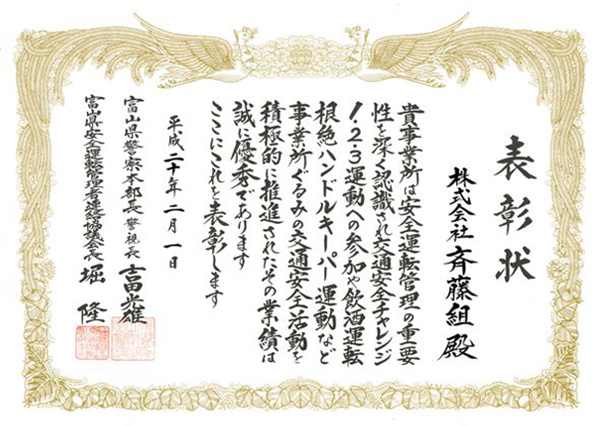 表彰状
株式会社 斉藤組 殿
貴事業所は安全運転管理の重要
性を深く認識され交通安全チャレンジ
1・2・3運動への参加や飲酒運転
根絶ハンドルキーパー運動など
事業所ぐるみの交通安全活動を
積極的に推進されたその業績は
誠に優秀であります
ここにこれを表彰します
平成二十年二月一日
富山県警察本部長 警視長 吉田光雄
富山県安全運転管理者連絡協議会長 堀 隆